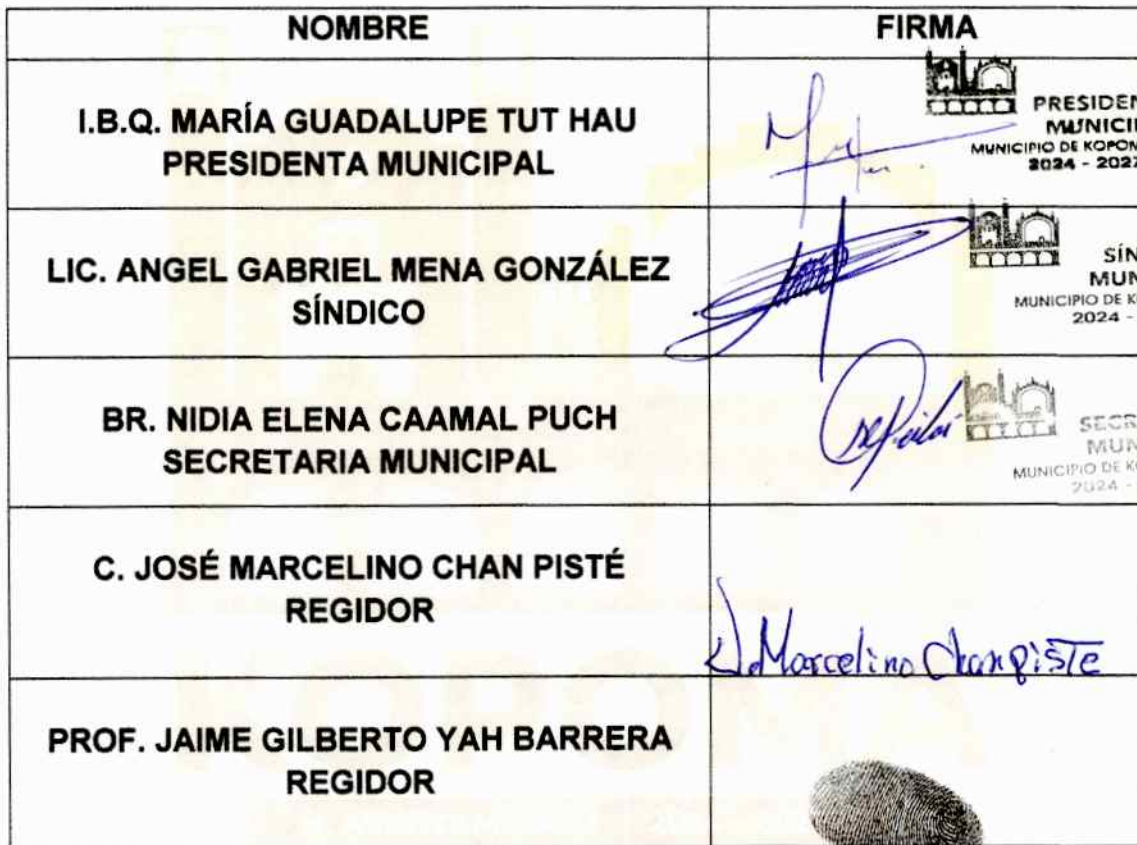 NOMBRE
FIRMA
I.B.Q. MARÍA GUADALUPE TUT HAU
PRESIDENTA MUNICIPAL
PRESIDEN
MUNICIP
MUNICIPIO DE KOPOM
2024 - 2027
LIC. ANGEL GABRIEL MENA GONZÁLEZ
SÍNDICO
SÍN
MUN
MUNICIPIO DE K
2024 -
BR. NIDIA ELENA CAAMAL PUCH
SECRETARIA MUNICIPAL
SECR
MUN
MUNICIPIO DE KO
2024 -
C. JOSÉ MARCELINO CHAN PISTÉ
REGIDOR
J. Marcelino Chan Piste
PROF. JAIME GILBERTO YAH BARRERA
REGIDOR
KOPOMÁ